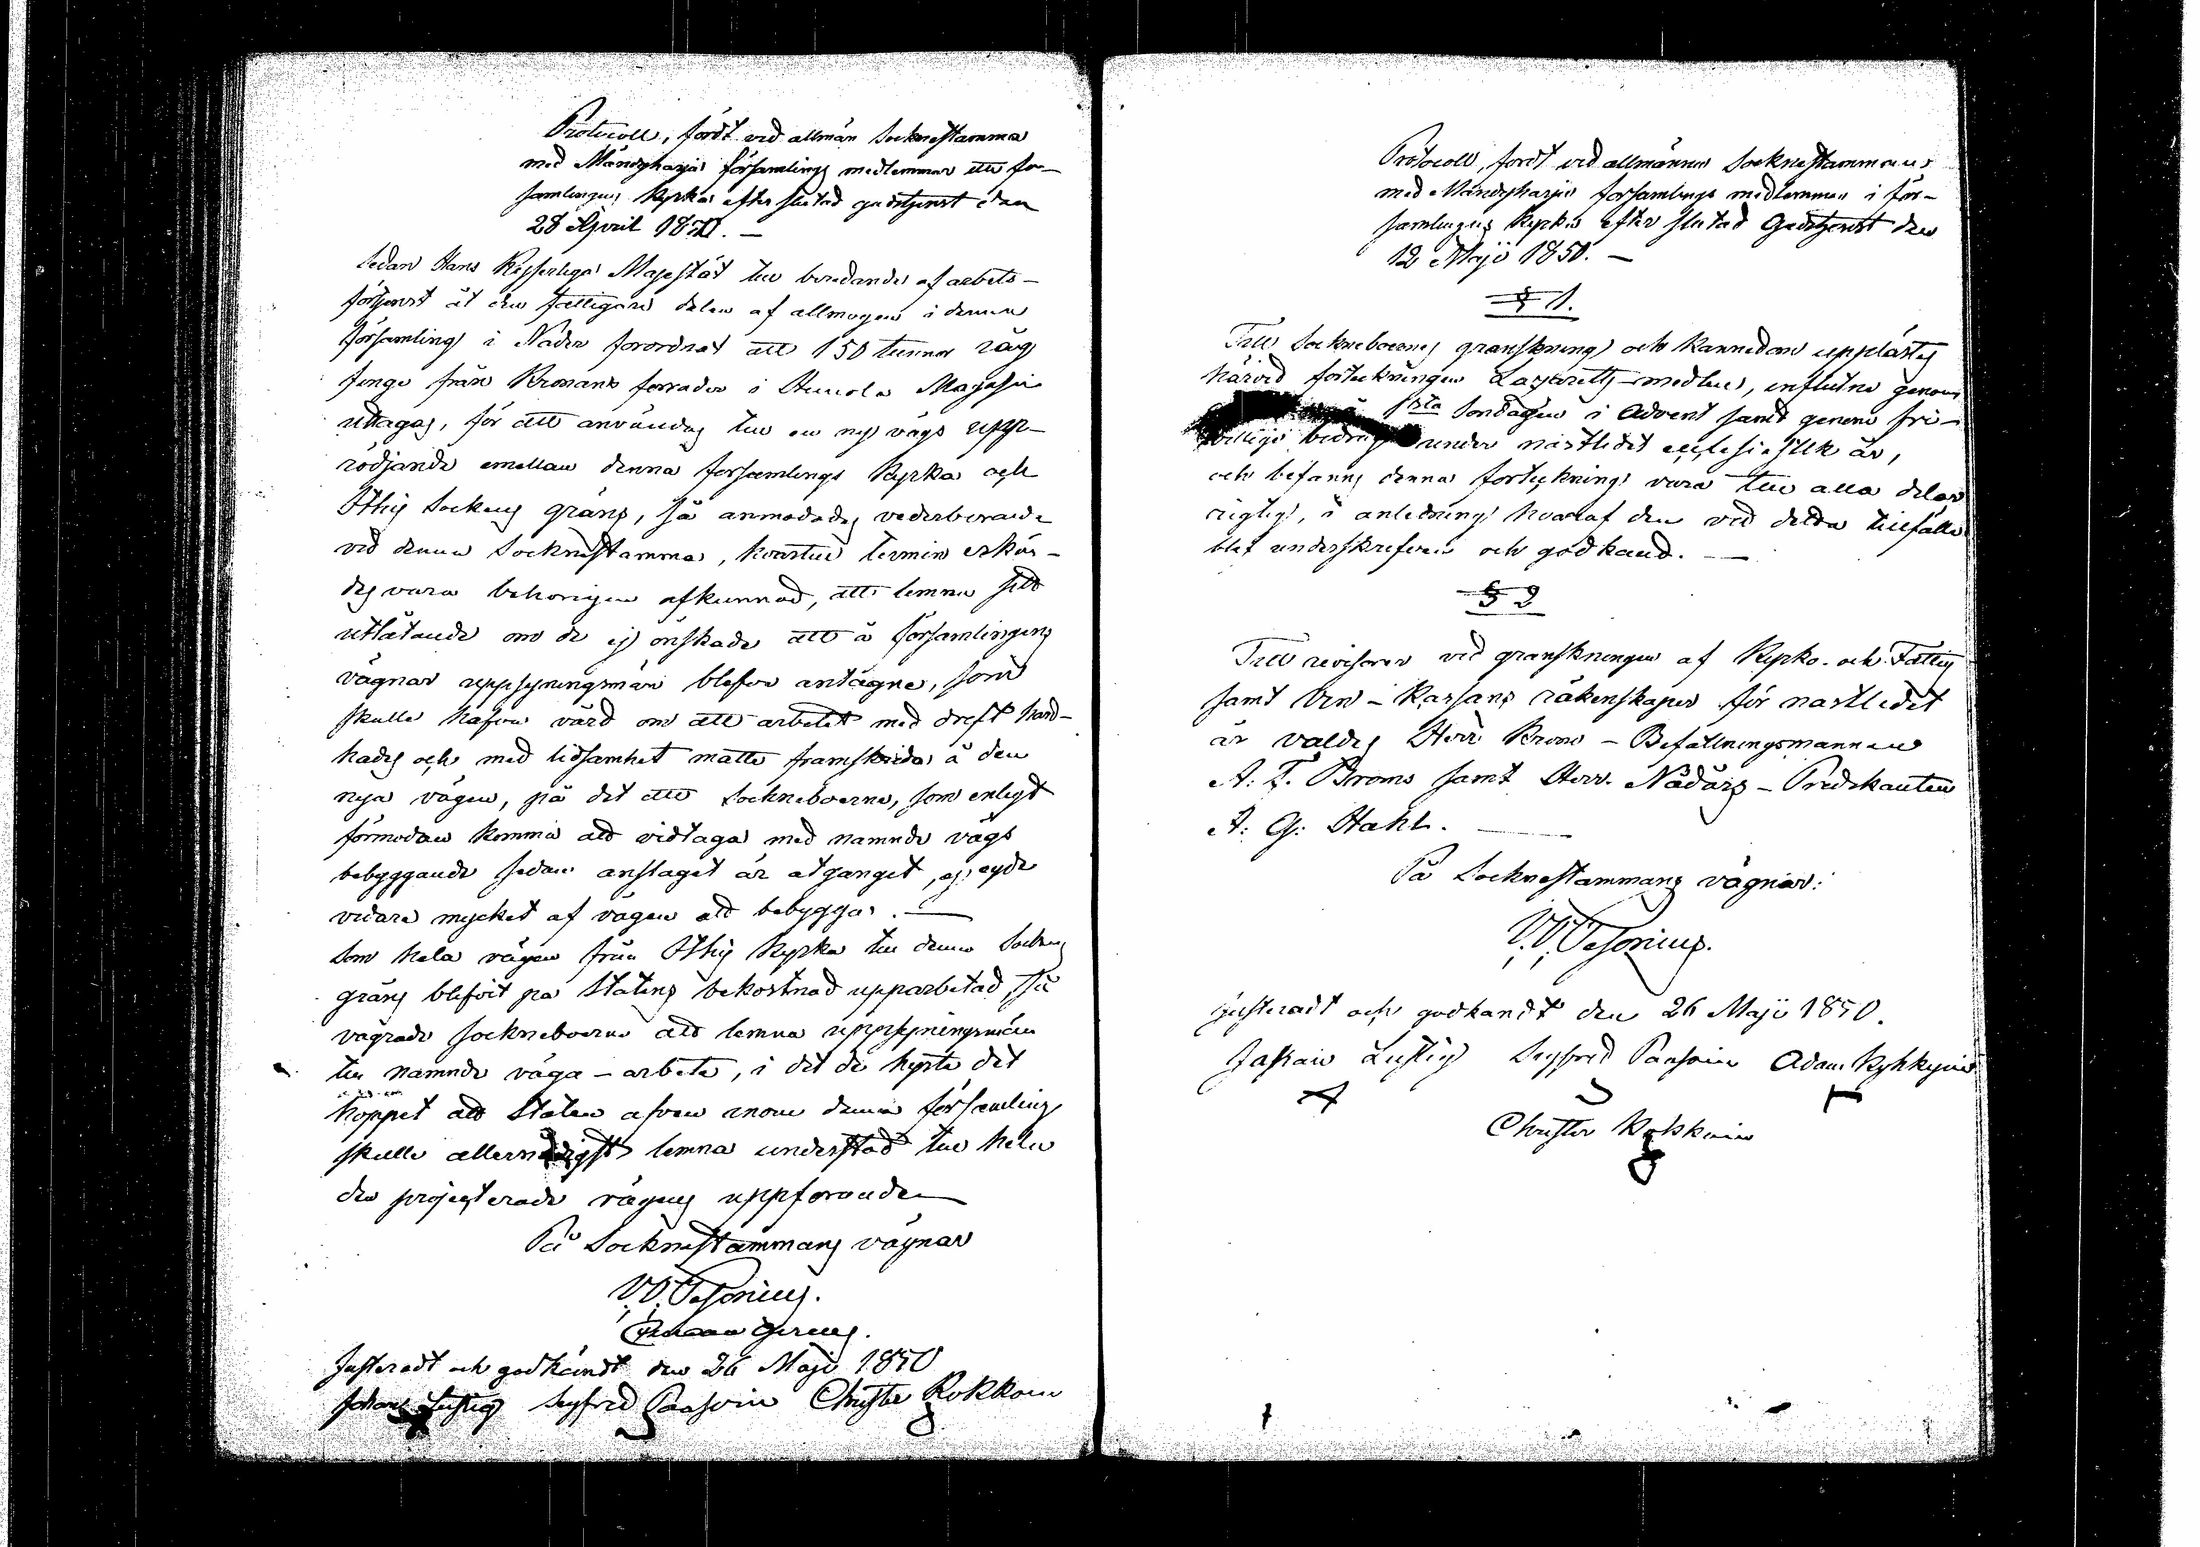 Protocoll, fördt vid allmän Socknestämma
med Mändyharju församlings medlemmar uti för-
samlingens Kyrka efter slutad gudstjenst den
28 April 1850. —
Sedan Hans Kejserliga Majestät till beredande af arbets-
förtjenst åt den fattigare delen af allmogen i denna
församling i Nåder förordnat att 150 tunnor råg
finge från Kronans förråder i Heinola Magasin
uttagas, för att användas till en ny vägs upp-
rödjande emellan denna församlings Kyrka och
Itthis Sockens gräns, så anmodades vederbörande
vid denna Socknestämma, hvartill termin erkän-
des vara behörigen afkunnad, att lemna sitt
utlåtande om de ej önskade att å församlingens
vägnar uppsyningsmän blefve antagne, som
skulle hafva vård om att arbetet med drift hand-
hades och med lidsamhet måtte framskrida å den
nya vägen, på det att Sockneboerne, som enligt
förmodan komma att vidtaga med nämnde vägs
bebyggande sedan anslaget är åtgånget, ej egde
vidare mycket af vägen att bebygga. —
Som hela vägen från Itthis Kyrka till denna Sockens
gräns blifvit på Statens bekostnad upparbetad, så
vägrade sockneboerne att lemna uppsyningsmän
till nämnde väga-arbete, i det de hyste det
hoppet att Staten äfven inom denna församling
skulle allernådigst lemna understöd till hela
den projecterade vägens uppförande
På Socknestämmans vägnar
W. W. Pesonius.
Justeradt och godkändt den 26 Maji 1850
Johan Lustig Sigfred Paasoin Christer Kokkoin
Protocoll, fördt vid allmänna Socknestämman
med Mändyharju församlings medlemmar i för-
samlingens Kyrka efter slutad Gudstjenst den
12 Maji 1850. —
§ 1.
Till Sockneboernes granskning och kännedom upplästes
härvid förteckningen Lazaretts-medlen, influtne genom
1sta Söndagen i Advent samt genom fri-
villige bidrag under nästledet ecclesiastik år,
och befanns denna förteckning vara till alla delar
rigtig, i anledning hvaraf den vid detta tillfälle
blef underskrifven och godkänd. —
§ 2
Till revisorer vid granskningen af Kyrko- och Fattig
samt Vin-Kassans räkenskaper för nästledet
år valdes Herr Krono-Befallningsmannen
A. F. Broms samt Herr Nådårs-Predikanten
A: G: Stahl. —
På Socknestämmans vägnar:
W. W. Pesonius.
Justeradt och godkändt den 26 Maji 1850.
Lustig Sigfred Paasoin Adam Kykkyin
Christer Kokkoin